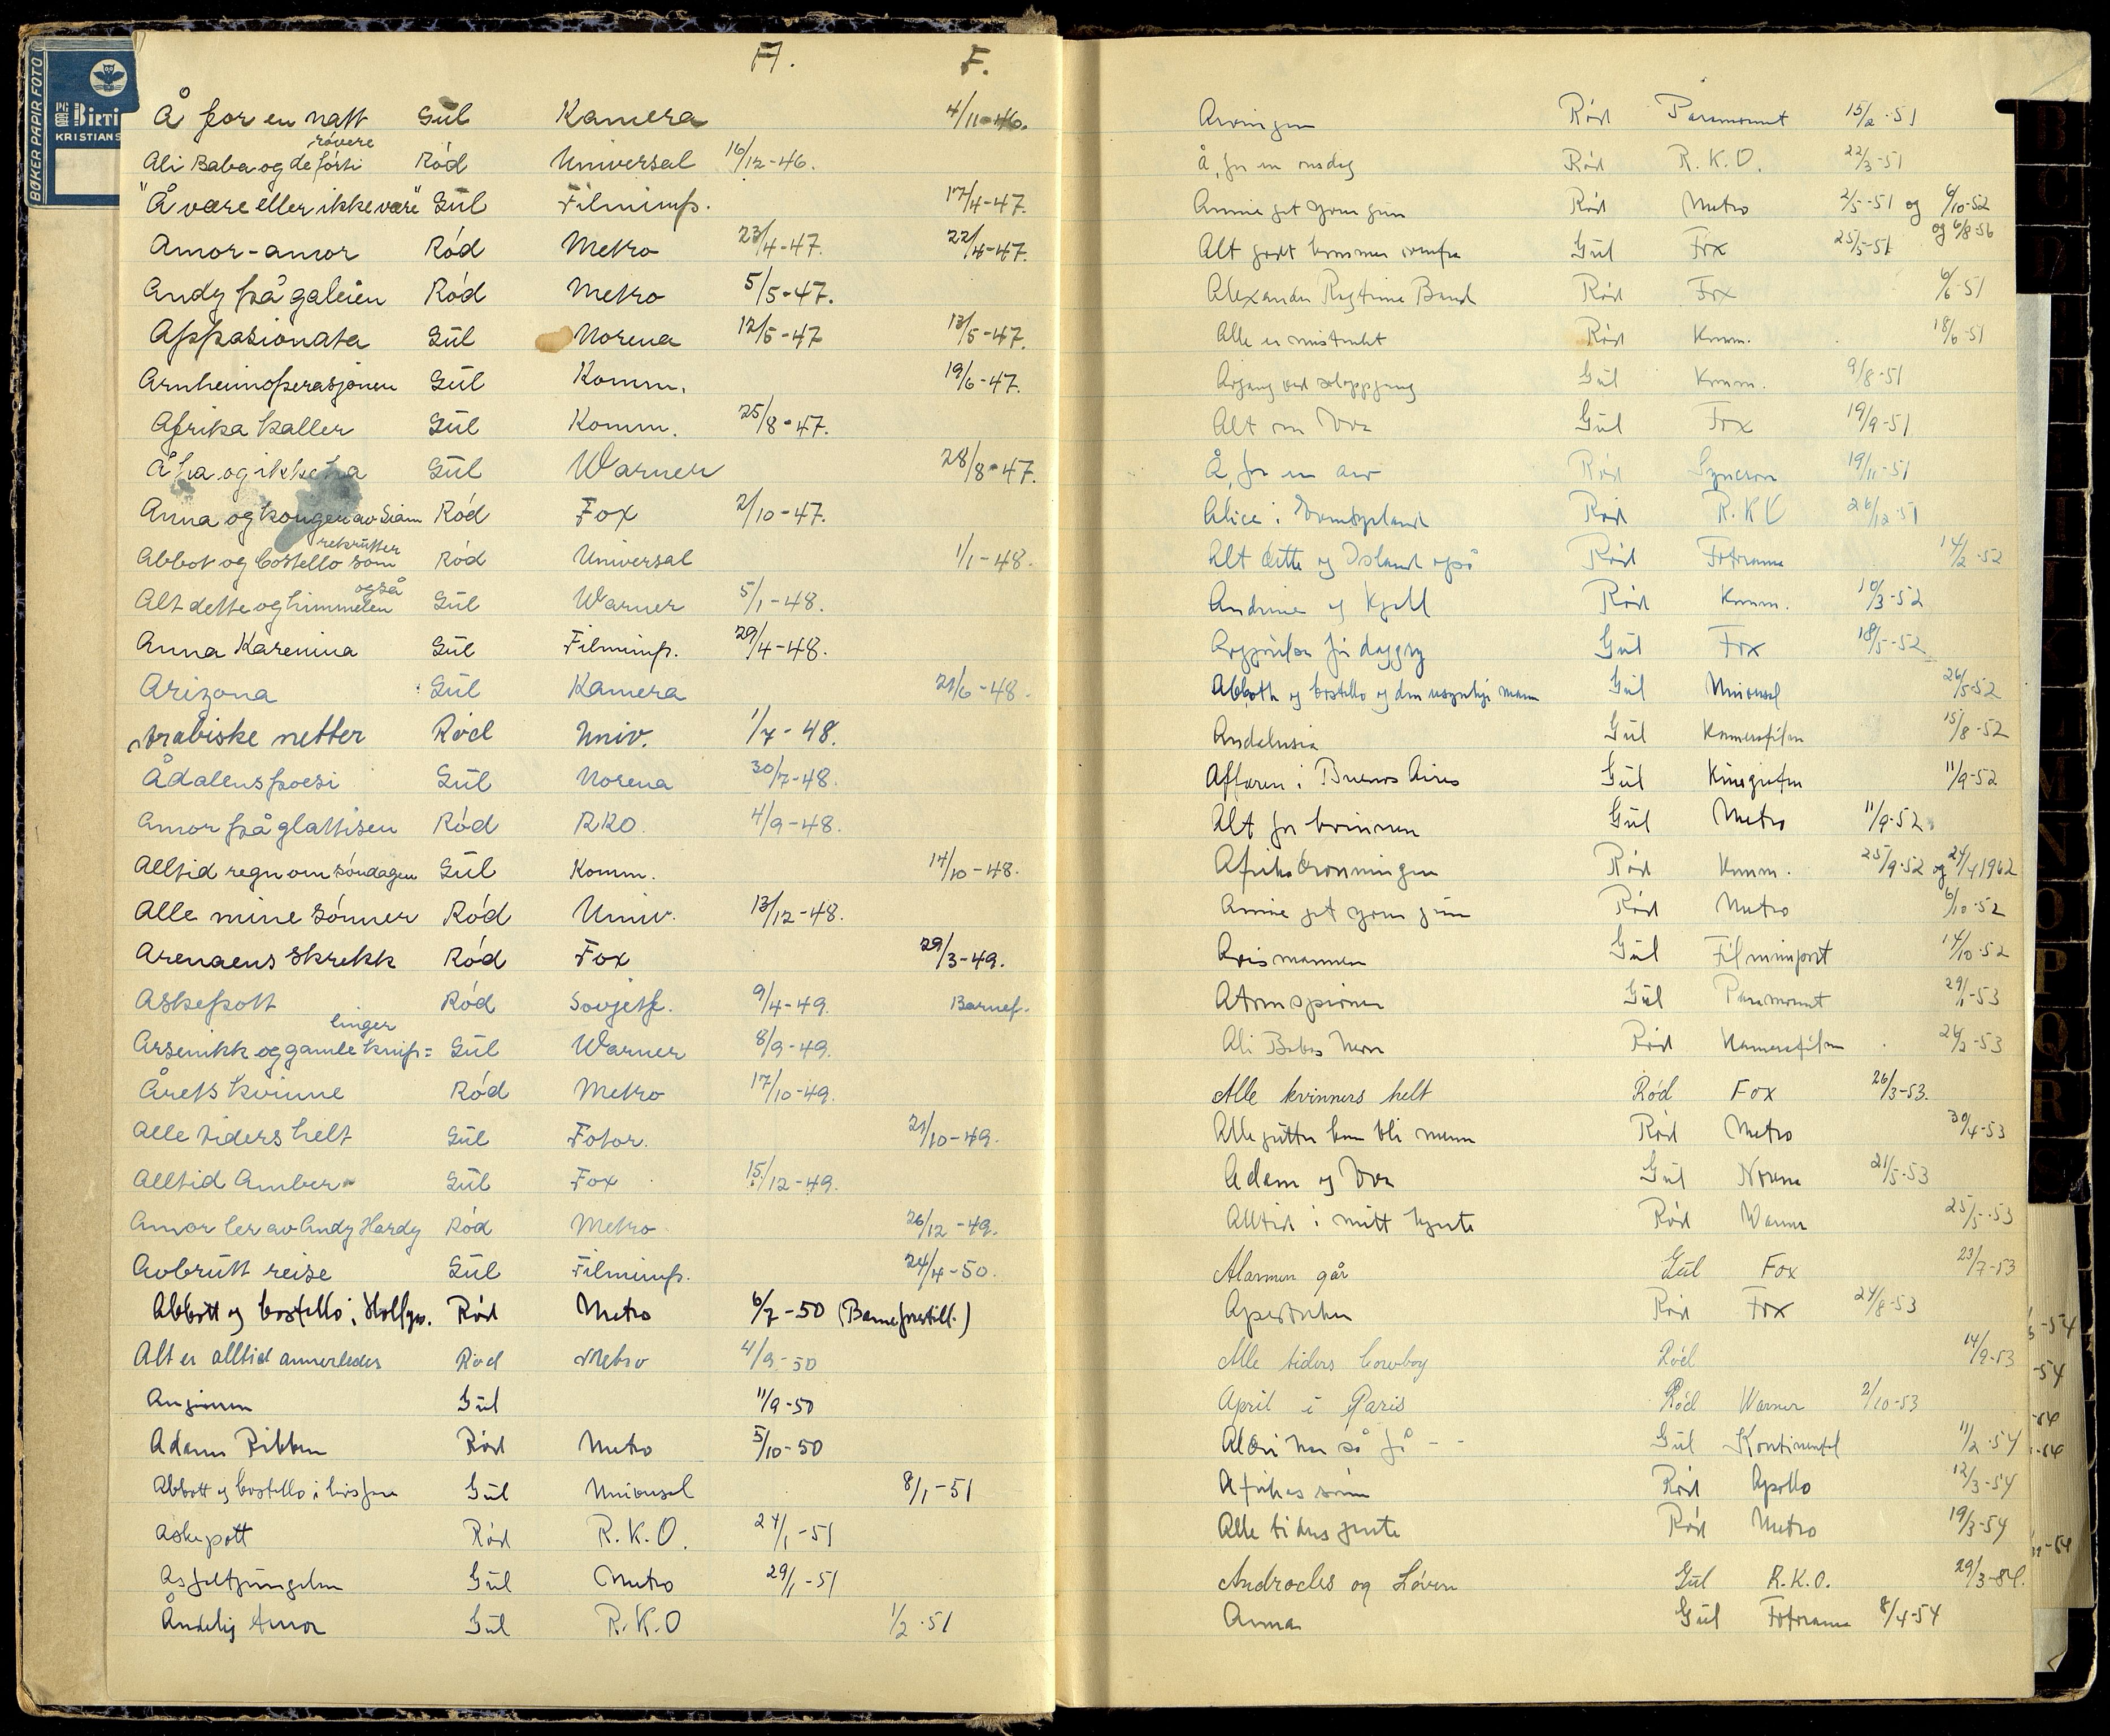 BØKER PAPIR FOTO
KRISTIANS
A. F.
Å for en natt Gül Kamera 4/11-46.
Ali Baba og de førti røvere Rød Universal 16/12-46.
"Å være eller ikke være" Gül Filmimp. 17/4-47.
Amor-amor Rød Metro 23/4-47. 22/4-47.
Andy på galeien Rød Metro 5/5-47.
Appasionata Gül Norena 12/5-47 13/5-47.
Arnheimoperasjonen Gül Komm. 19/6-47.
Afrika kaller Gül Komm. 25/8-47.
Å ha og ikke ha Gül Warner 28/8-47.
Anna og kongen av Siam Rød Fox 2/10-47.
Abbot og Costello som rekrütter Rød Universal 1/1-48.
Alt dette og himmelen også Gül Warner 5/1-48.
Anna Karenina Gül Filmimp. 29/4-48.
Arizona Gül Kamera 21/6-48.
Arabiske netter Rød Univ. 1/7-48.
Ådalens poesi Gül Norena 30/7-48.
Amor på glattisen Rød RKO. 4/9-48.
Alltid regn om søndagen Gül Komm. 14/10-48.
Alle mine sønner Rød Univ. 13/12-48.
Arenaens skrekk Rød Fox 29/3-49.
Askepott Rød Sovjetf. 9/4-49. Barnef.
Arsenikk og gamle knip=linger Gül Warner 8/9-49.
Årets kvinne Rød Metro 17/10-49.
Alle tiders helt Gül Fotor. 21/10-49.
Alltid Amber Gül Fox 15/12-49.
Amor ler av Andy Hardy Rød Metro 26/12-49.
Avbrütt reise Gül Filmimp. 24/4-50.
Abbott og Costello i Hollyw. Rød Metro 6/7-50 (Barneforestill.)
Alt er alltid annerledes Rød Metro 4/9-50
Gül 11/9-50
Adams Ribben Rød Metro 5/10-50
Abbott og Costello i Gül Universal 8/1-51
Askepott Rød R.K.O. 24/1-51
Asfaltjüngelen Gül Metro 29/1-51
Åndelig Amor Gül R.K.O 1/2-51
Arvingen Rød Paramount 15/2-51
Å, for en onsdag Rød R.K.O. 22/3-51
Annie get your gün Rød Metro 2/5-51 og 6/10-52
og 6/8-56
Alt godt kommer ovenfra Gül Fox 25/5-51
Alexanders Ragtime Band Rød Fox 6/6-51
Alle er mistenkt Rød Komm. 18/6-51
Avgang ved soloppgang Gül Komm. 9/8-51
Alt om Eva Gül Fox 19/9-51
Å, for en Rød 19/11-51
Alice i Eventyrland Rød R.KO 26/12-51
Alt dette og Island også Rød Fotorama 14/2-52
Andrine og Kjell Rød Komm. 10/3-52
Avgjørelse før daggry Gül Fox 18/5-52
Abboth og Costello og den usynlige mann Gül Universal 26/5-52
Andalusia Gül Kamerafilm 15/8-52
Affæren i Buenos Aires Gül Kinografen 11/9-52
Alt for kvinnen Gül Metro 11/9-52
Afrikadronningen Rød Komm. 25/9-52 og 24/4 1962
Annie get your gün Rød Metro 6/10-52
Avismannen Gül Filmimport 14/10-52
Atomspionen Gül Paramount 29/1-53
Ali Babas hevn Rød Kamerafilm 26/2-53
Alle kvinners helt Rød Fox 26/3-53.
Alle gütter kan bli menn Rød Metro 30/4-53
Adam og Eva Gül Norena 21/5-53
Alltid i mitt hjerte Rød Warner 25/5-53
Alarmen går Gül Fox 23/7-53
Apestreker Rød Fox 24/8-53
Alle tiders Cowboy Rød 14/9-53
April i Paris Rød Warner 2/10-53
Aldri har så få - - Gül Kontinental 11/2-54
Afrikas sønn Rød Apollo 12/3-54
Alle tiders jente Rød Metro 19/3-54
Androcles og Løven Gül R.K.O. 29/3-54.
Anna Gül Fotorama 8/4-54